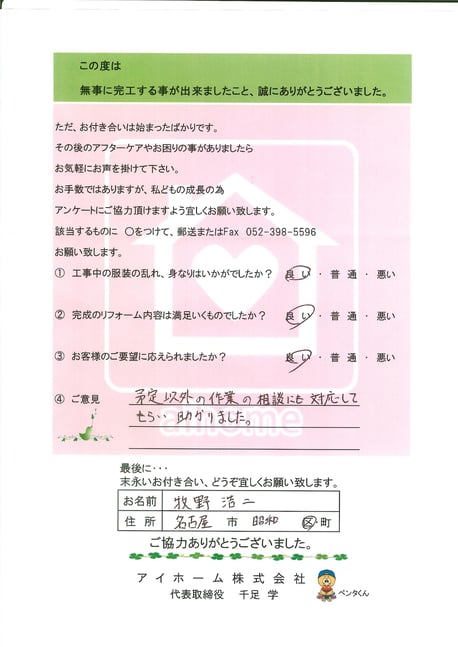 この度は
無事に完工する事が出来ましたこと、誠にありがとうございました。
ただ、お付き合いは始まったばかりです。
その後のアフターケアやお困りの事がありましたら
お気軽にお声を掛けて下さい。
お手数ではありますが、私どもの成長の為
アンケートにご協力頂けますよう宜しくお願い致します。
該当するものに ○をつけて、郵送またはFax 052-398-5596
お願い致します。
① 工事中の服装の乱れ、身なりはいかがでしたか? 良い・普通・悪い
② 完成のリフォーム内容は満足いくものでしたか? 良い・普通・悪い
③ お客様のご要望に応えられましたか? 良い・普通・悪い
④ ご意見 予定以外の作業の相談にも対応して
もらい 助かりました。
aihome
最後に・・・
末永いお付き合い、どうぞ宜しくお願い致します。
お名前 牧野 浩二
住所 名古屋 市 昭和 区・町
ご協力ありがとうございました。
アイホーム株式会社
代表取締役 千足 学
ペンタくん